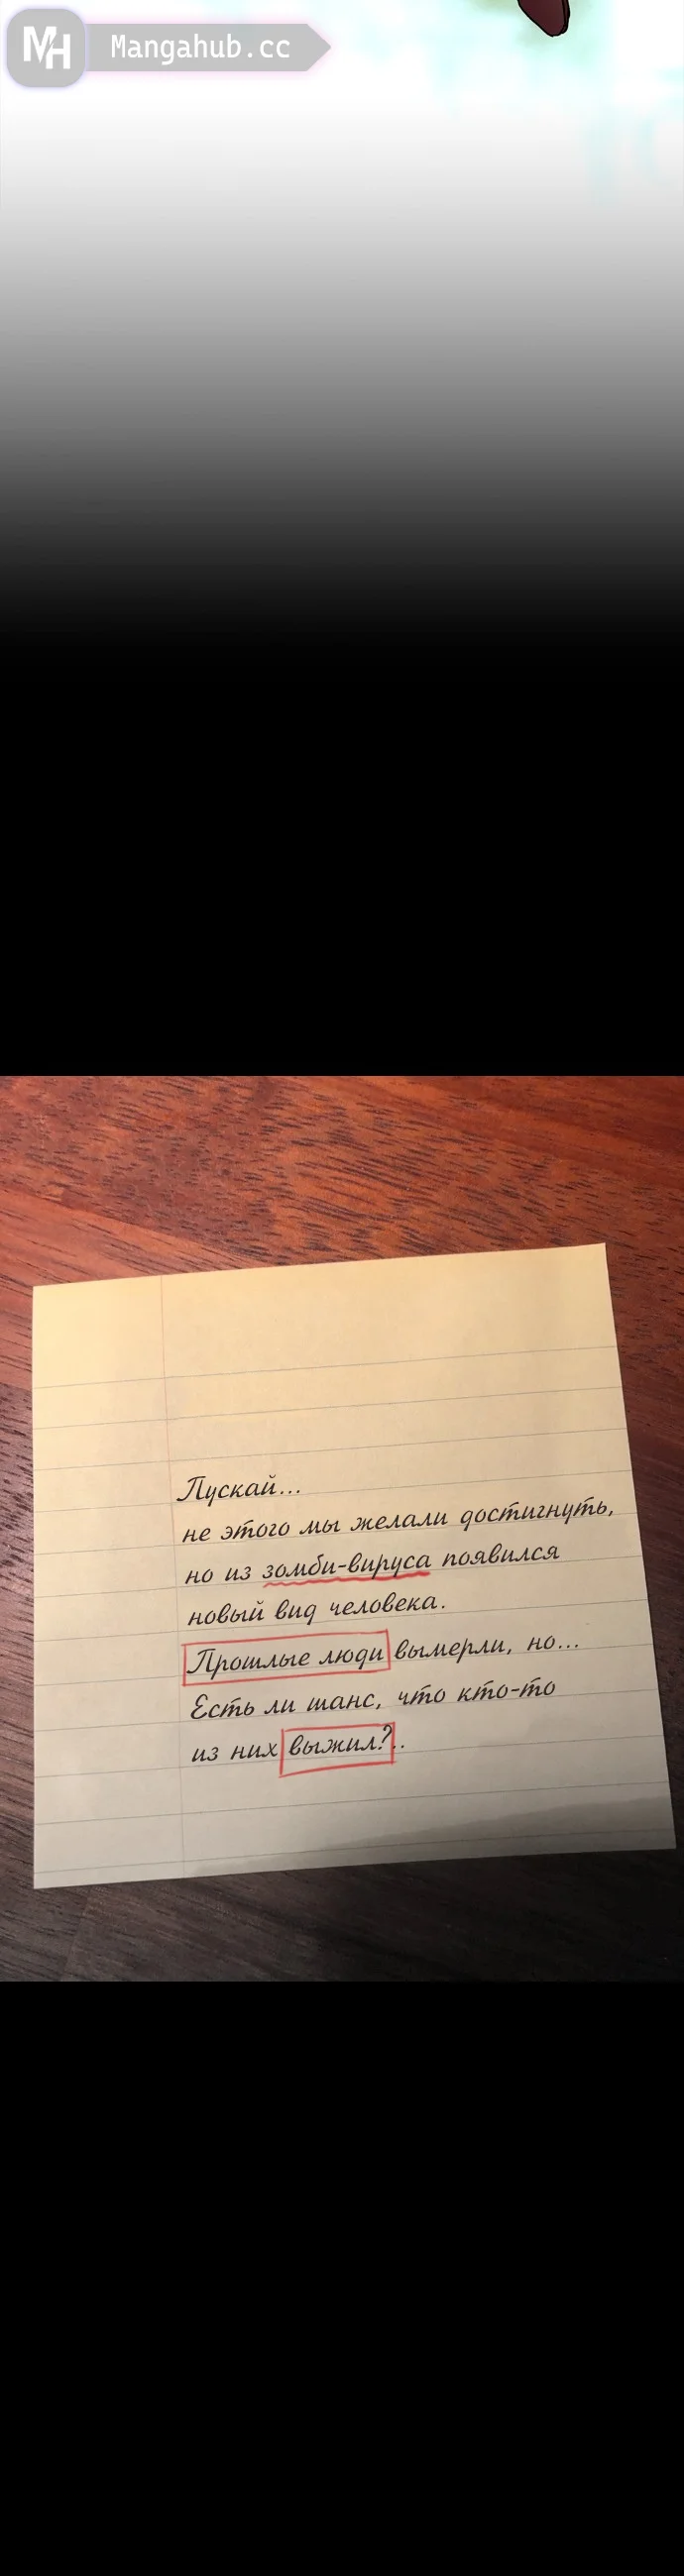 MH
Mangahub.cc
Пускай...
не этого мы желали достигнуть,
но из зомби-вируса появился
новый вид человека.
Прошлые люди вымерли, но...
Есть ли шанс, что кто-то
из них выжил?..